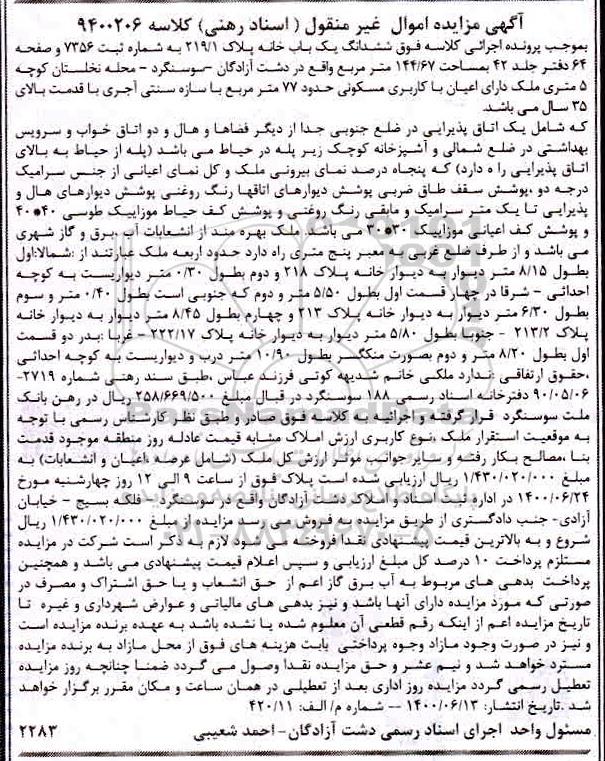 آگهی مزایده اموال غیر منقول ( اسناد رهنی) کلاسه ۹۴۰۰۲۰۶
بموجب پرونده اجرائی کلاسه فوق ششدانگ یک باب خانه پلاک ۲۱۹/۱ به شماره ثبت ۷۳۵۶ و صفحه
۶۴ دفتر جلد ۴۲ بمساحت ۱۴۴/۶۷ متر مربع واقع در دشت آزادگان –سوسنگرد – محله نخلستان کوچه
۵ متری ملک دارای اعیان با کاربری مسکونی حدود ۷۷ متر مربع با سازه سنتی آجری با قدمت بالای
۳۵ سال می باشد.
که شامل یک اتاق پذیرایی در ضلع جنوبی جدا از دیگر فضاها و هال و دو اتاق خواب و سرویس
بهداشتی در ضلع شمالی و آشپزخانه کوچک زیر پله در حیاط می باشد (پله از حیاط به بالای
اتاق پذیرایی را ه دارد) که پنجاه درصد نمای بیرونی ملک و کل نمای اعیانی از جنس سرامیک
درجه دو ،پوشش سقف طاق ضربی پوشش دیوارهای اتاقها رنگ روغنی پوشش دیوارهای هال و
پذیرایی تا یک متر سرامیک و مابقی رنگ روغنی و پوشش کف حیاط موزاییک طوسی ۴۰*۴۰
و پوشش کف اعیانی موزاییک ۳۰*۳۰ می باشد. ملک بهره مند از انشعابات آب ،برق و گاز شهری
می باشد و از طرف ضلع غربی به معبر پنج متری راه دارد حدود اربعه ملک عبارتند از :شمالا:اول
بطول ۸/۱۵ متر دیوار به دیوار خانه پلاک ۲۱۸ و دوم بطول ۰/۳۰ متر دیواریست به کوچه
احداثی – شرقا در چهار قسمت اول بطول ۵/۵۰ متر و دوم که جنوبی است بطول ۰/۴۰ متر و سوم
بطول ۶/۳۰ متر دیوار به دیوار خانه پلاک ۲۱۳ و چهارم بطول ۸/۴۵ متر دیوار به دیوار خانه
پلاک ۲۱۳/۲ – جنوبا بطول ۵/۸۰ متر دیوار به دیوار خانه پلاک ۲۲۲/۱۷ – غربا :بدر دو قسمت
اول بطول ۸/۲۰ متر و دوم بصورت منکسر بطول ۱۰/۹۰ متر درب و دیواریست به کوچه احداثی
،حقوق ارتفاقی ندارد ملکی خانم شدیهه کوتی فرزند عباس ،طبق سند رهنی شماره ۲۷۱۹-
۹۰/۰۵/۰۶ دفترخانه اسناد رسمی ۱۸۸ سوسنگرد در قبال مبلغ ۲۵۸/۶۶۹/۵۰۰ ریال در رهن بانک
ملت سوسنگرد قرار گرفته و اجرائیه به کلاسه فوق صادر و طبق نظر کارشناس رسمی با توجه
به موقعیت استقرار ملک ،نوع کاربری ارزش املاک مشابه قیمت عادله روز منطقه موجود قدمت
بنا ،مصالح بکار رفته و سایر جوانب موثر ارزش کل ملک (شامل عرصه ،اعیان و انشعابات) به
مبلغ ۱/۴۳۰/۰۲۰/۰۰۰ ریال ارزیابی شده است پلاک فوق از ساعت ۹ الی ۱۲ روز چهارشنبه مورخ
۱۴۰۰/۰۶/۲۴ در اداره ثبت اسناد و املاک دشت آزادگان واقع در سوسنگرد – فلکه بسیج – خیابان
آزادی- جنب دادگستری از طریق مزایده به فروش می رسد مزایده از مبلغ ۱/۴۳۰/۰۲۰/۰۰۰ ریال
شروع و به بالاترین قیمت پیشنهادی نقدا فروخته می شود لازم به ذکر است شرکت در مزایده
مستلزم پرداخت ۱۰ درصد کل مبلغ ارزیابی و سپس اعلام قیمت پیشنهادی می باشد و همچنین
پرداخت بدهی های مربوط به آب برق گاز اعم از حق انشعاب و یا حق اشتراک و مصرف در
صورتی که مورد مزایده دارای آنها باشد و نیز بدهی های مالیاتی و عوارض شهرداری و غیره تا
تاریخ مزایده اعم از اینکه رقم قطعی آن معلوم شده یا نشده باشد به عهده برنده مزایده است
و نیز در صورت وجود مازاد وجوه پرداختی بابت هزینه های فوق از محل مازاد به برنده مزایده
مسترد خواهد شد و نیم عشر و حق مزایده نقدا وصول می گردد ضمنا چنانچه روز مزایده
تعطیل رسمی گردد مزایده روز اداری بعد از تعطیلی در همان ساعت و مکان مقرر برگزار خواهد
شد .تاریخ انتشار: ۱۴۰۰/۰۶/۱۳ –– شماره م/ الف: ۴۲۰/۱۱
مسئول واحد اجرای اسناد رسمی دشت آزادگان- احمد شعیبی ۲۲۸۳